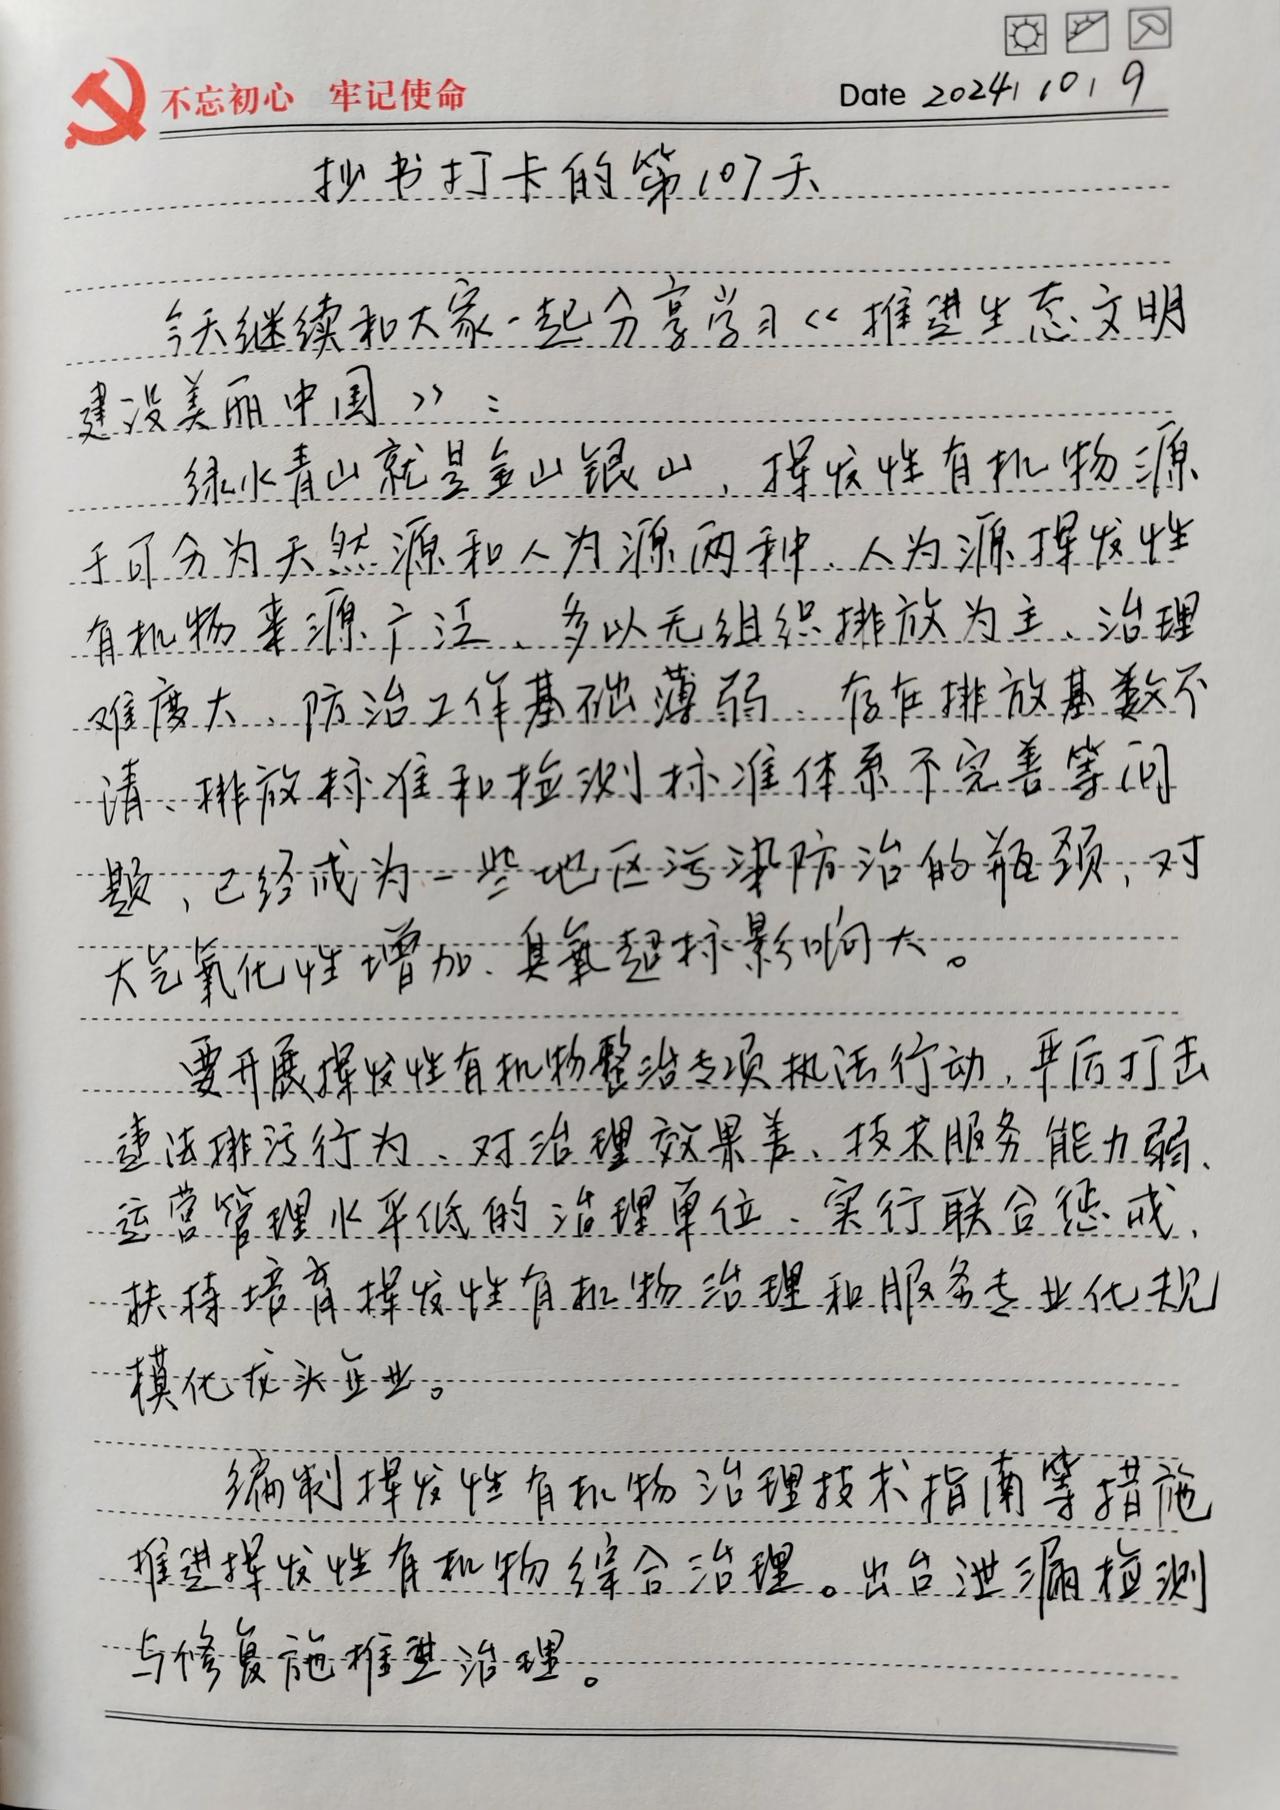 不忘初心 牢记使命
Date 2024 10 9
抄书打卡的第107天
今天继续和大家一起分享学习《推进生态文明
建设美丽中国》：
绿水青山就是金山银山，挥发性有机物源
于可分为天然源和人为源两种、人为源挥发性
有机物来源广泛、多以无组织排放为主、治理
难度大、防治工作基础薄弱、存在排放基数不
清、排放标准和检测标准体系不完善等问
题，已经成为一些地区污染防治的瓶颈，对
大气氧化性增加、臭氧超标影响大。
要开展挥发性有机物整治专项执法行动，严厉打击
违法排污行为、对治理效果差、技术服务能力弱、
运营管理水平低的治理单位、实行联合惩戒，
扶持培育挥发性有机物治理和服务专业化规
模化龙头企业。
编制挥发性有机物治理技术指南等措施
推进挥发性有机物综合治理。出台泄漏检测
与修复施推进治理。